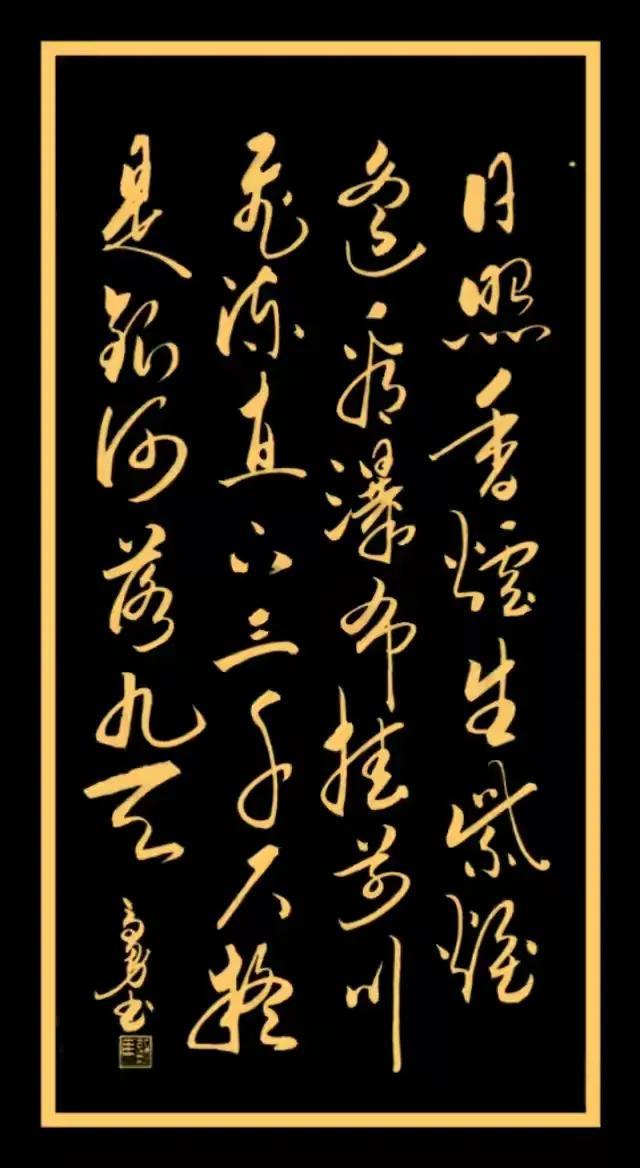 日照香爐生紫煙
遙看瀑布挂前川
飛流直下三千尺疑
是銀河落九天
高勇书